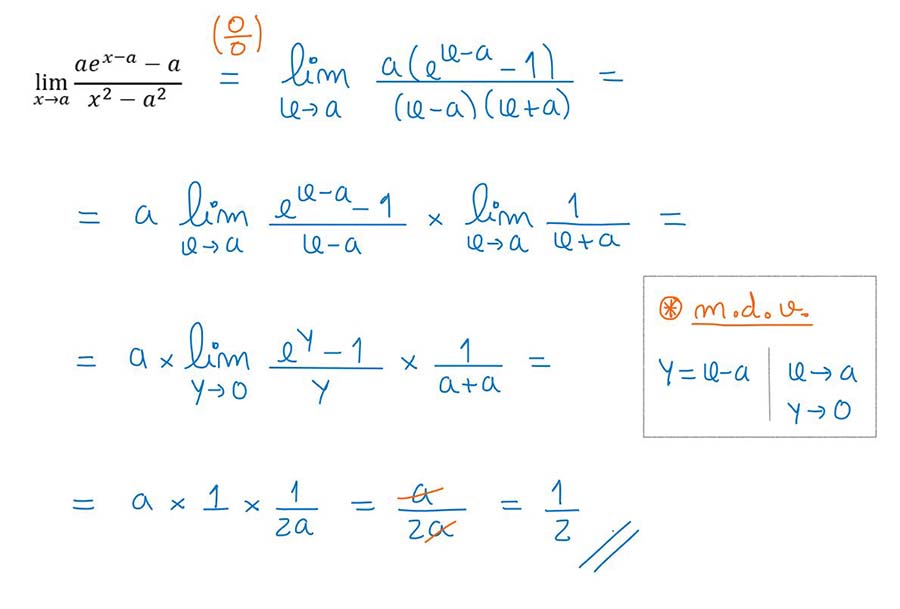 lim x→a (ae^(x−a) − a)/(x² − a²) (0/0) = lim x→a a(e^(x−a) − 1)/((x−a)(x+a)) =
= a lim x→a (e^(x−a) − 1)/(x−a) × lim x→a 1/(x+a) =
= a × lim y→0 (e^y − 1)/y × 1/(a+a) =
⊛ m.d.v.
y = x−a | x→a
y→0
= a × 1 × 1/(2a) = a/(2a) = 1/2 //